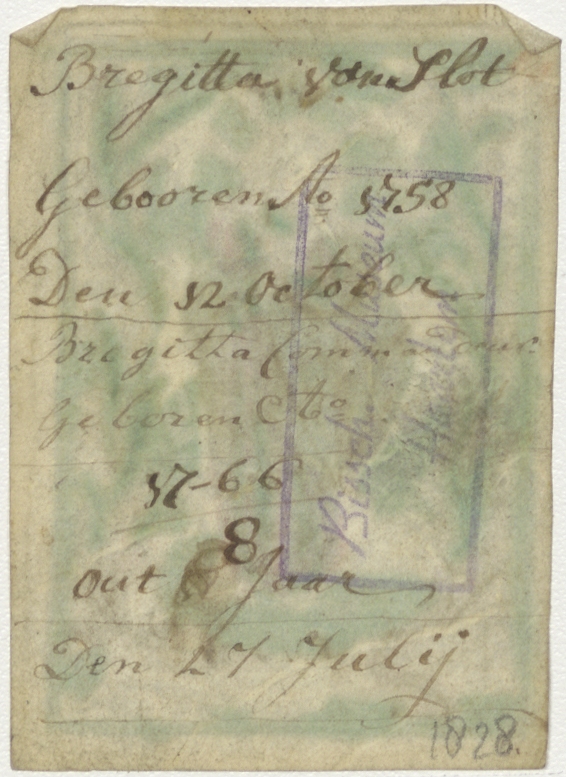 Bregitta van Slot
Gebooren Ao 1758
Den 12 October
Bregitta Commandeur
Geboren Ao
17-66
8
out Jaar
Den 27 Julij
Bissch. Museum
Haarlem
1828.